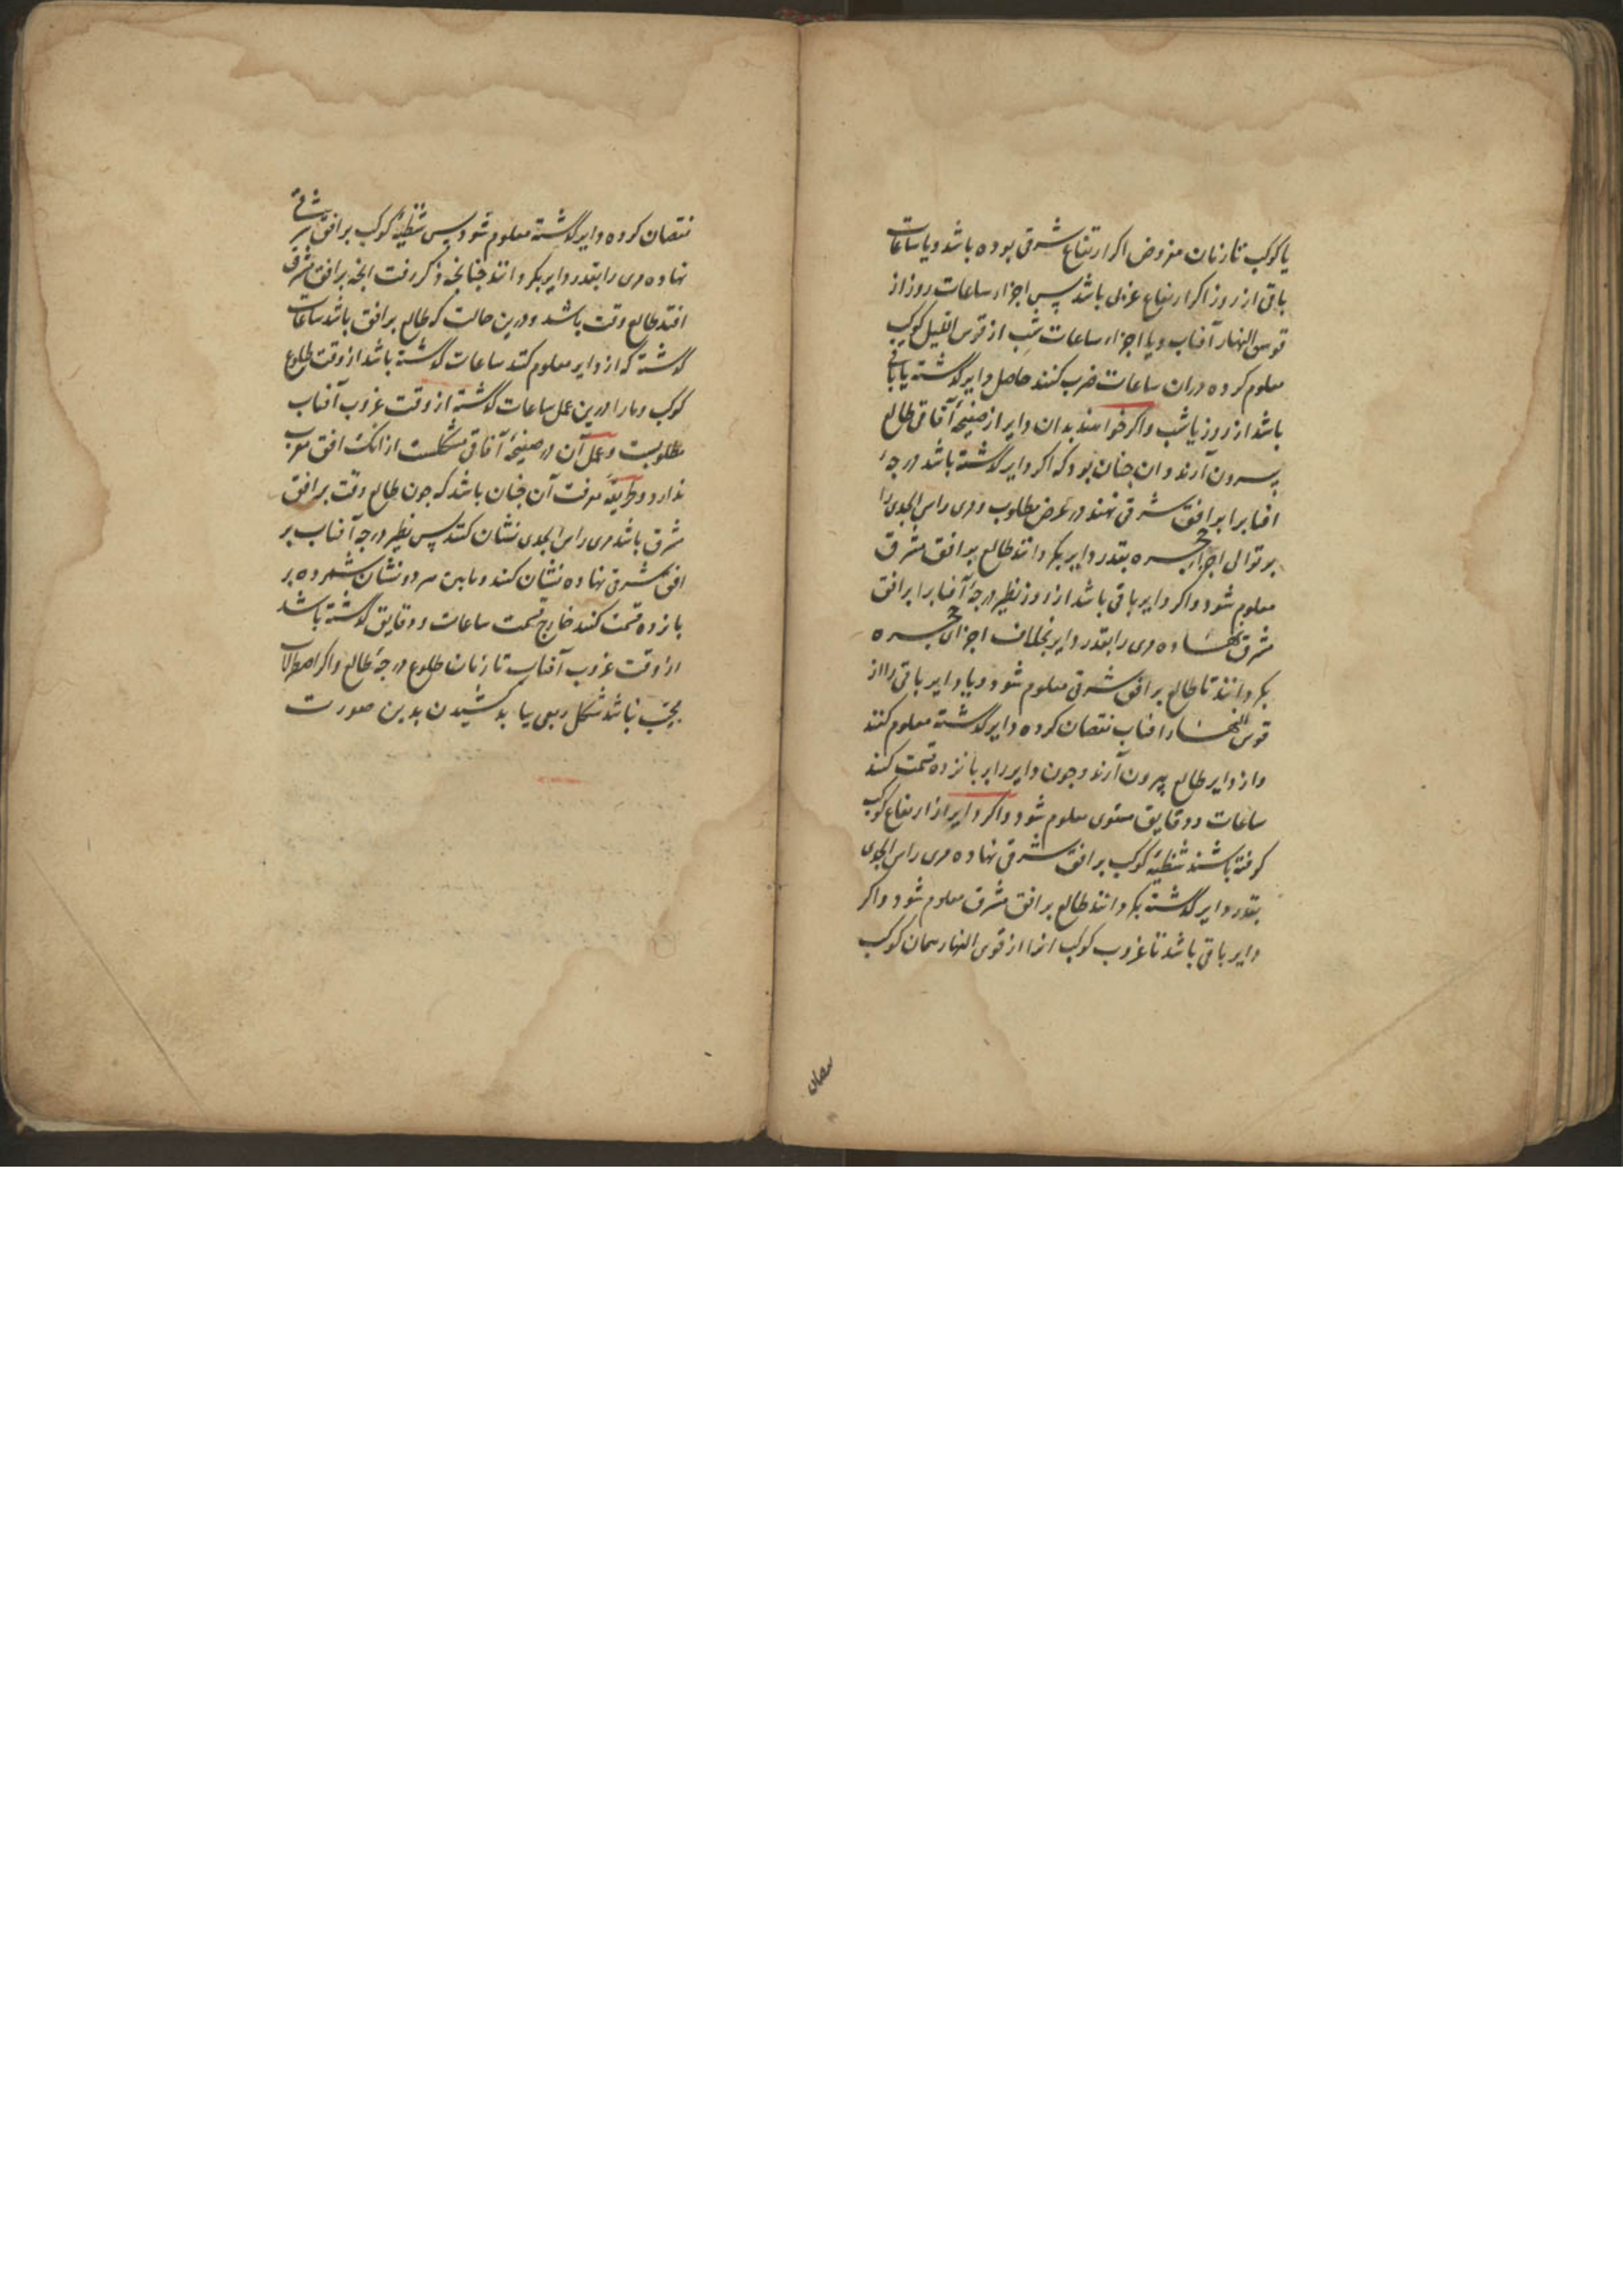 یا کوکب تا زمان مفروض اکر ارتفاع شرقی بوده باشد و یا ساعات
باقی از روز اکر ارتفاع غربی باشد پس اجزاء ساعات روز از
قوس النهار آفتاب و یا اجزاء ساعات شب از قوس اللیل کوکب
معلوم کرده در ان ساعات ضرب کنند حاصل دایر کذشته یا باقی
باشد از روز یا شب و اکر خواهند بدان دایر از صفیحهٔ آفاقی طالع
بیرون آرند و ان جنان بود که اکر دایر کذشته باشد درجهٔ
افتابرا بر افق شرقی نهند در عرض مطلوب و مری راس الجدی را
بر توالی اجزاء حجره بقدر دایر بکردانند طالع بر افق مشرق
معلوم شود و اکر دایر باقی باشد از روز نظیر درجهٔ آفتابرا بر افق
مشرق نهاده مری را بقدر دایر بخلاف اجزای حجره
بکردانند تا طالع بر افق شرقی معلوم شود و یا دایر باقی را از
قوس النهار افتاب نقصان کرده دایر کذشته معلوم کنند
و از دایر طالع بیرون آرند و جون دایر را بر بانزده قسمت کنند
ساعات و دقایق مستوی معلوم شود و اکر دایر از ارتفاع کوکب
کرفته باشند شظیهٔ کوکب بر افق شرقی نهاده مری راس الجدی
بقدر دایر کذشته بکردانند طالع بر افق مشرق معلوم شود و اکر
دایر باقی باشد تا غروب کوکب انرا از قوس النهار همان کوکب
نقصان
نقصان کرده دایر کذشته معلوم شود پس شظیهٔ کوکب بر افق شرقی
نهاده مری را بقدر دایر بکردانند جنانجه ذکر رفت انجه بر افق مشرق
افتد طالع وقت باشد و درین حالت که طالع بر افق باشد ساعات
کذشته که از دایر معلوم کنند ساعات کذشته باشد از وقت طلوع
کوکب و ما را درین عمل ساعات کذشته از وقت غروب آفتاب
مطلوبست و عمل آن در صفیحهٔ آفاقی مشکلست از انک افق مغرب
ندارد و طریقهٔ معرفت آن جنان باشد که جون طالع وقت بر افق
مشرق باشد مری راس الجدی نشان کنند پس نظیر درجهٔ آفتاب بر
افق شرقی نهاده نشان کنند و مابین هر دو نشان شمرده بر
بانزده قسمت کنند خارج قسمت ساعات و دقایق کذشته باشد
از وقت غروب آفتاب تا زمان طلوع درجهٔ طالع و اکر اصطرلاب
مجیب نباشد شکل ربعی بباید کشیدن بدین صورت